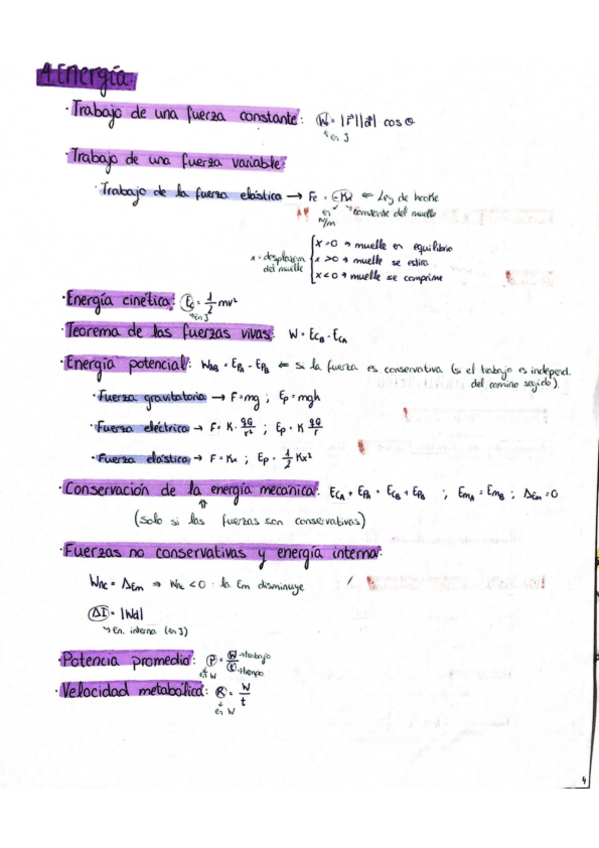 4. Energía:
· Trabajo de una fuerza constante: W = |F||d| cos θ
↳ en J
· Trabajo de una fuerza variable:
· Trabajo de la fuerza elástica → Fe = -Kx ← Ley de hooke
en N/m ↳ constante del muelle
x = desplazam. del muelle
x=0 → muelle en equilibrio
x>0 → muelle se estira
x<0 → muelle se comprime
· Energía cinética: Ec = 1/2 mv²
↳ en J
· Teorema de las fuerzas vivas: W = EcB - EcA
· Energía potencial: WAB = EpA - EpB ← si la fuerza es conservativa (si el trabajo es independ.
del camino seguido).
· Fuerza gravitatoria → F=mg ; Ep=mgh
· Fuerza eléctrica → F= K· qQ/r² ; Ep = K qQ
· Fuerza elástica → F = Kx ; Ep = 1/2 Kx²
· Conservación de la energía mecánica: EcA + EpA = EcB + EpB ; EmA = EmB ; ΔEm = 0
(Solo si las fuerzas son conservativas)
· Fuerzas no conservativas y energía interna:
Wnc = ΔEm ⇒ Wnc < 0 : la Em disminuye
ΔI = |Wd|
↳ En. interna (en J)
· Potencia promedio: P = W/t → trabajo → tiempo
en W
· Velocidad metabólica: R = W/t
en W
4